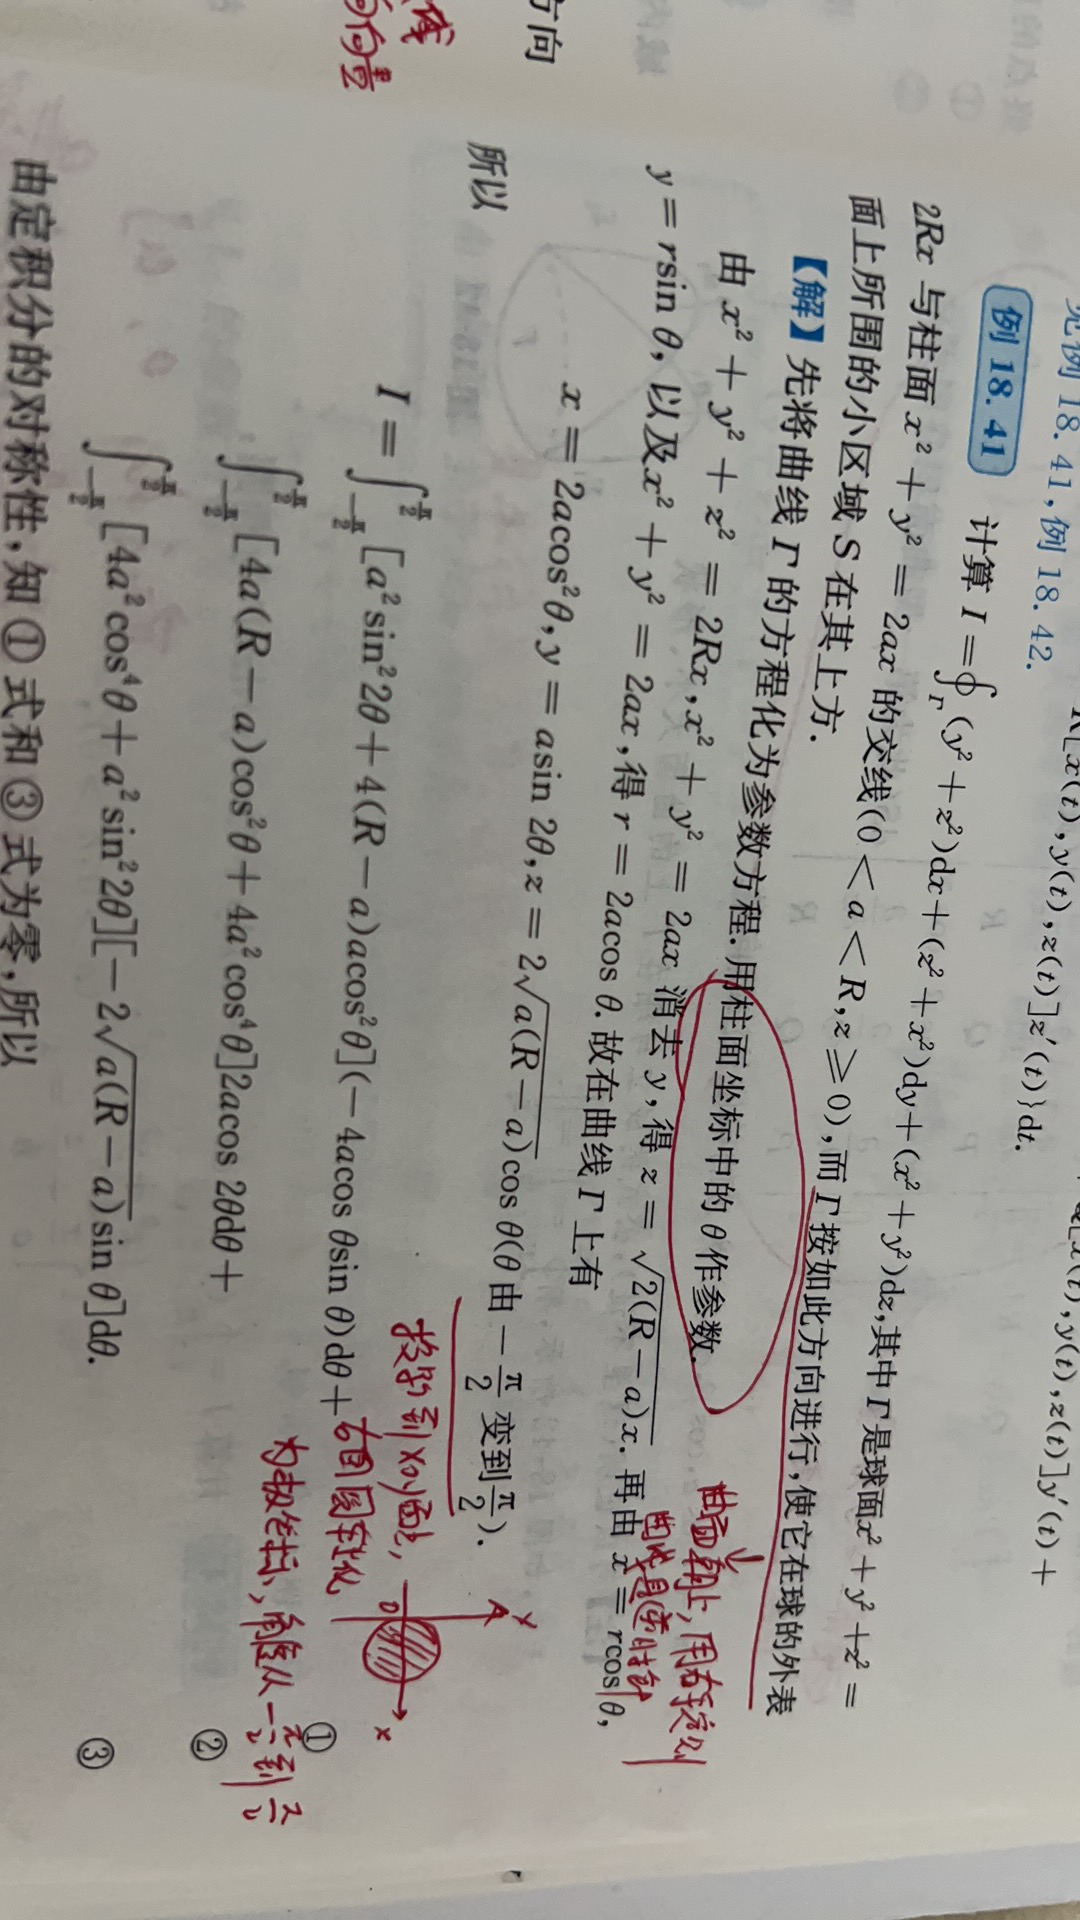 见例 18.41,例 18.42.
x(t),y(t),z(t)]z′(t)}dt.
x(t),y(t),z(t)]y′(t)+
例 18.41 计算 I=∮_Γ (y²+z²)dx+(z²+x²)dy+(x²+y²)dz,其中 Γ 是球面x²+y²+z²=
2Rx 与柱面 x²+y²=2ax 的交线(0<a<R,z≥0),而 Γ 按如此方向进行,使它在球的外表
面上所围的小区域 S 在其上方.
【解】先将曲线 Γ 的方程化为参数方程.用柱面坐标中的 θ 作参数.
由 x²+y²+z²=2Rx,x²+y²=2ax 消去 y,得 z=√(2(R−a)x).再由 x=rcos θ,
y=rsin θ,以及x²+y²=2ax,得 r=2acos θ.故在曲线 Γ 上有
x=2acos²θ,y=asin 2θ,z=2√(a(R−a))cos θ(θ 由−π/2变到π/2).
所以
I=∫_{−π/2}^{π/2}[a²sin²2θ+4(R−a)acos²θ](−4acos θsin θ)dθ+ ①
∫_{−π/2}^{π/2}[4a(R−a)cos²θ+4a²cos⁴θ]2acos 2θdθ+ ②
∫_{−π/2}^{π/2}[4a²cos⁴θ+a²sin²2θ][−2√(a(R−a))sin θ]dθ. ③
由定积分的对称性,知①式和③式为零,所以
曲面朝上,用右手定则
曲线是逆时针
投影到xoy面上,
右圆转化
为极坐标,角度从−π/2到π/2
y
O
x
方向